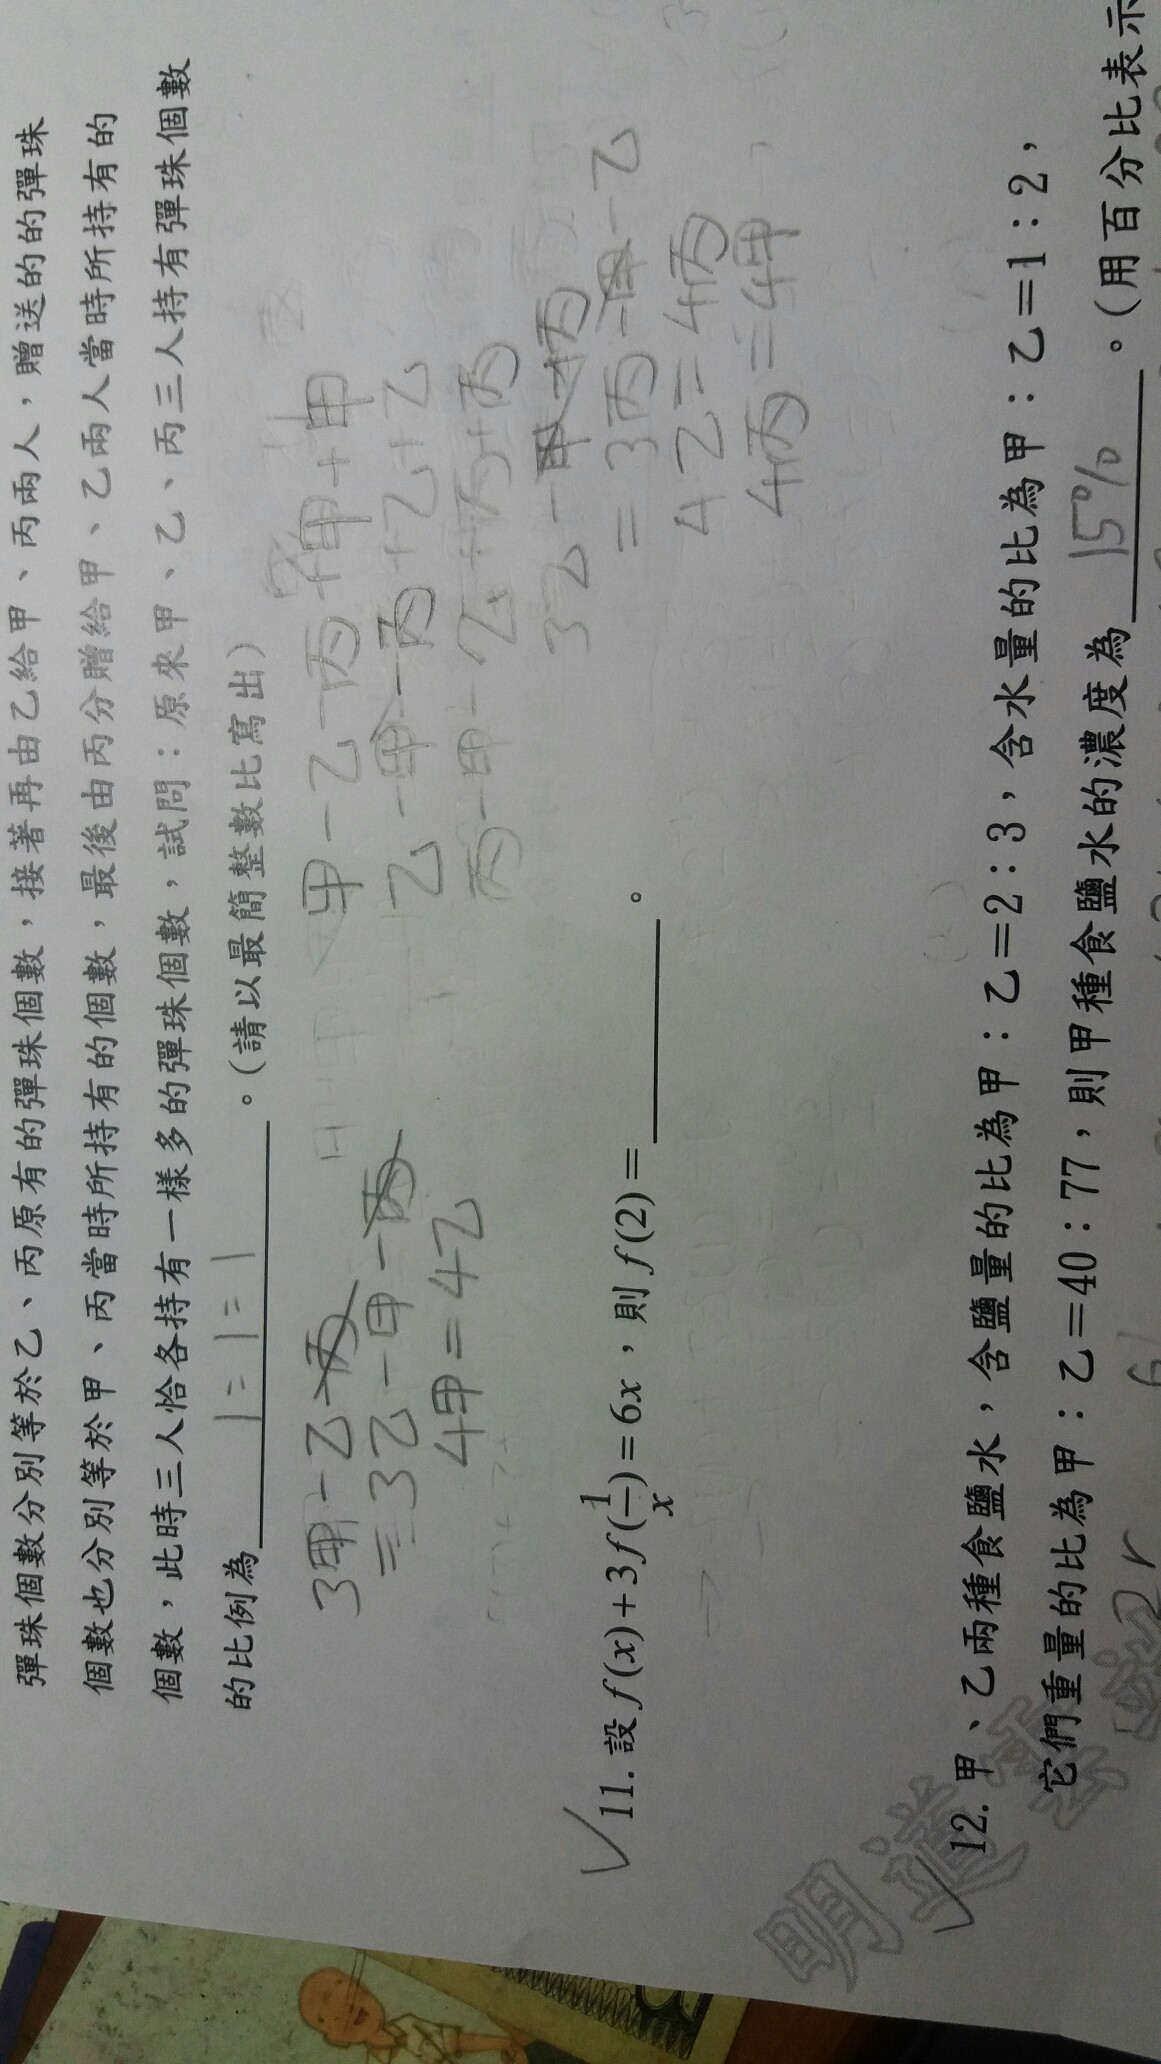 彈珠個數分別等於乙、丙原有的彈珠個數，接著再由乙給甲、丙兩人，贈送的的彈珠
個數也分別等於甲、丙當時所持有的個數，最後由丙分贈給甲、乙兩人當時所持有的
個數，此時三人恰各持有一樣多的彈珠個數，試問：原來甲、乙、丙三人持有彈珠個數
的比例為 1=1=1 。(請以最簡整數比寫出)
甲-乙-丙+甲+甲
乙-甲-丙+乙+乙
丙-甲-乙+丙+丙
3甲-乙-丙
=3乙-甲-丙
4甲=4乙
3乙-甲-丙
=3丙-甲-乙
4乙=4丙
4丙=4甲
11. 設 f(x)+3f(1/x)=6x，則 f(2)= 。
12. 甲、乙兩種食鹽水，含鹽量的比為甲：乙=2：3，含水量的比為甲：乙=1：2，
它們重量的比為甲：乙=40：77，則甲種食鹽水的濃度為 15% 。(用百分比表示
明道